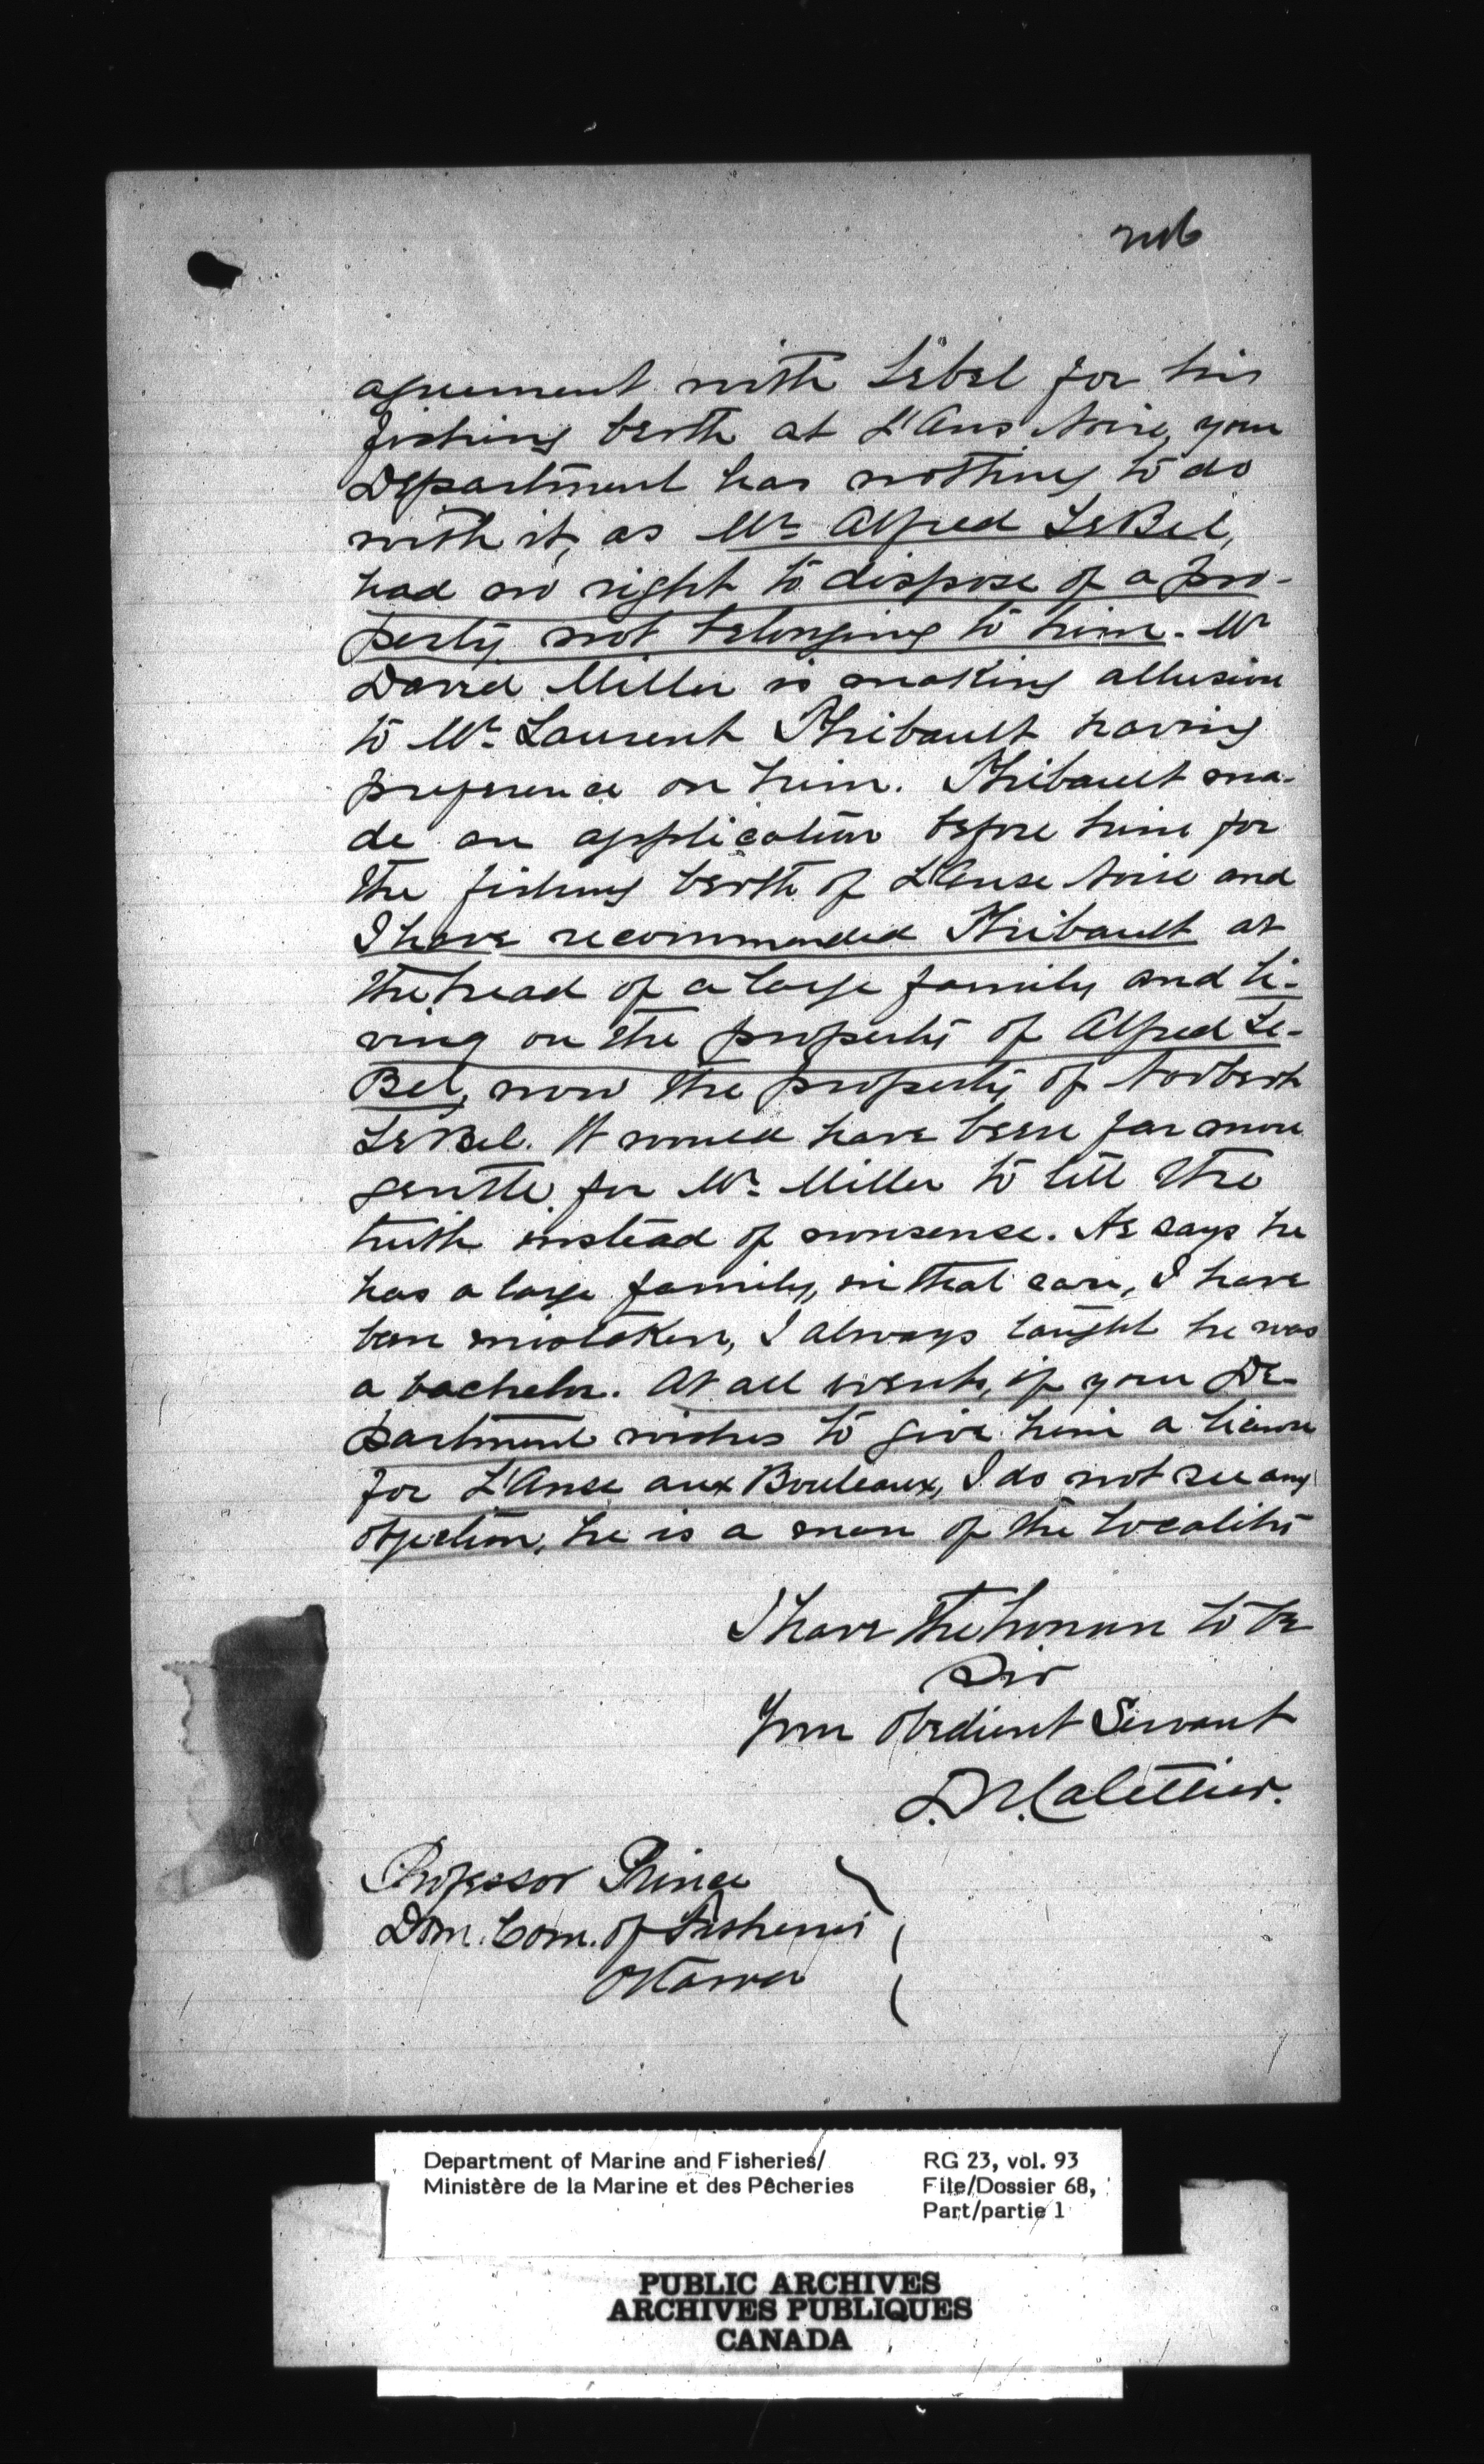 agreement with LeBel for his
fishing berth at L'Ans Noire, your
Department has nothing to do
with it, as Mr. Alfred LeBel,
had no right to dispose of a pro-
perty not belonging to him. Mr
David Miller is making allusion
to Mr. Laurent Thibault having
preference on him. Thibault ma-
de an application before him for
the fishing berth of L'Anse Noire and
I have recommended Thibault at
the head of a large family and li-
ving on the property of Alfred Le-
Bel, now the property of Norbert
LeBel. It would have been far more
gentle for Mr. Miller to tell the
truth instead of nonsense. He says he
has a large family, in that case, I have
been mistaken, I always taught he was
a bachelor. At all events, if your De-
partment wishes to give him a licence
for L'Anse aux Bouleaux, I do not see any
objection, he is a man of the locality
I have the honour to be
Sir
Your obedient Servant
Professor Prince
Dom. Com. of Fisheries
Ottawa
Department of Marine and Fisheries/
Ministère de la Marine et des Pêcheries
RG 23, vol. 93
File/Dossier 68,
Part/partie 1
PUBLIC ARCHIVES
ARCHIVES PUBLIQUES
CANADA